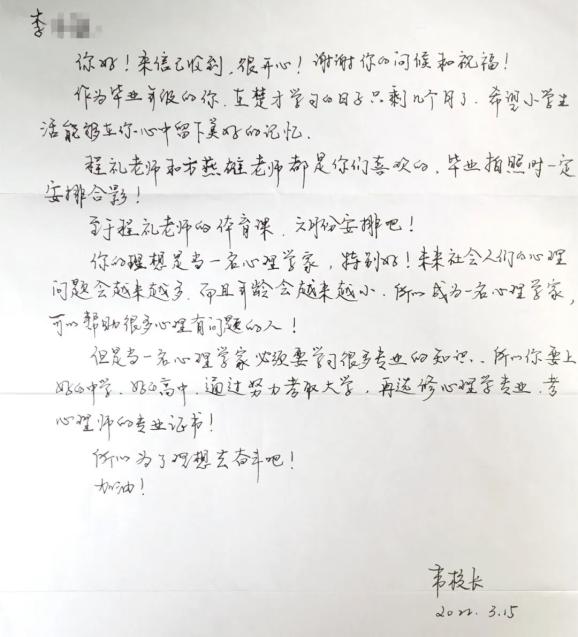 李
你好！来信已收到，很开心！谢谢你的问候和祝福！
作为毕业年级的你，在楚才学习的日子只剩几个月了，希望小学生
活能够在你心中留下美好的记忆．
程礼老师和方燕雄老师都是你们喜欢的，毕业拍照时一定
安排合影！
至于程礼老师的体育课，六月份安排吧！
你的理想是当一名心理学家，特别好！未来社会人们的心理
问题会越来越多，而且年龄会越来越小．所以成为一名心理学家，
可以帮助很多心理有问题的人！
但是当一名心理学家必须要学习很多专业的知识．．所以你要上
好的中学．好的高中．通过努力考取大学，再选修心理学专业．考
心理师的专业证书！
所以为了理想去奋斗吧！
加油！
韦校长
2022.3.15